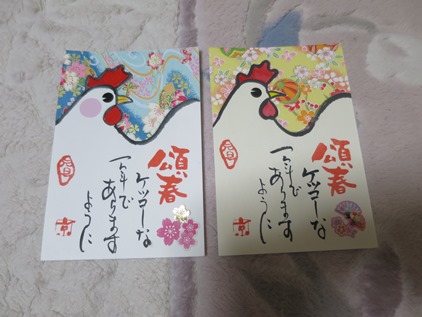 頌春
ケッコーな
一年で
あります
ように
元旦
京
頌春
ケッコーな
一年で
あります
ように
元旦
京